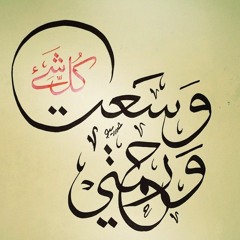 ورحمتي
وَسَعت
كُلَّ شَئ